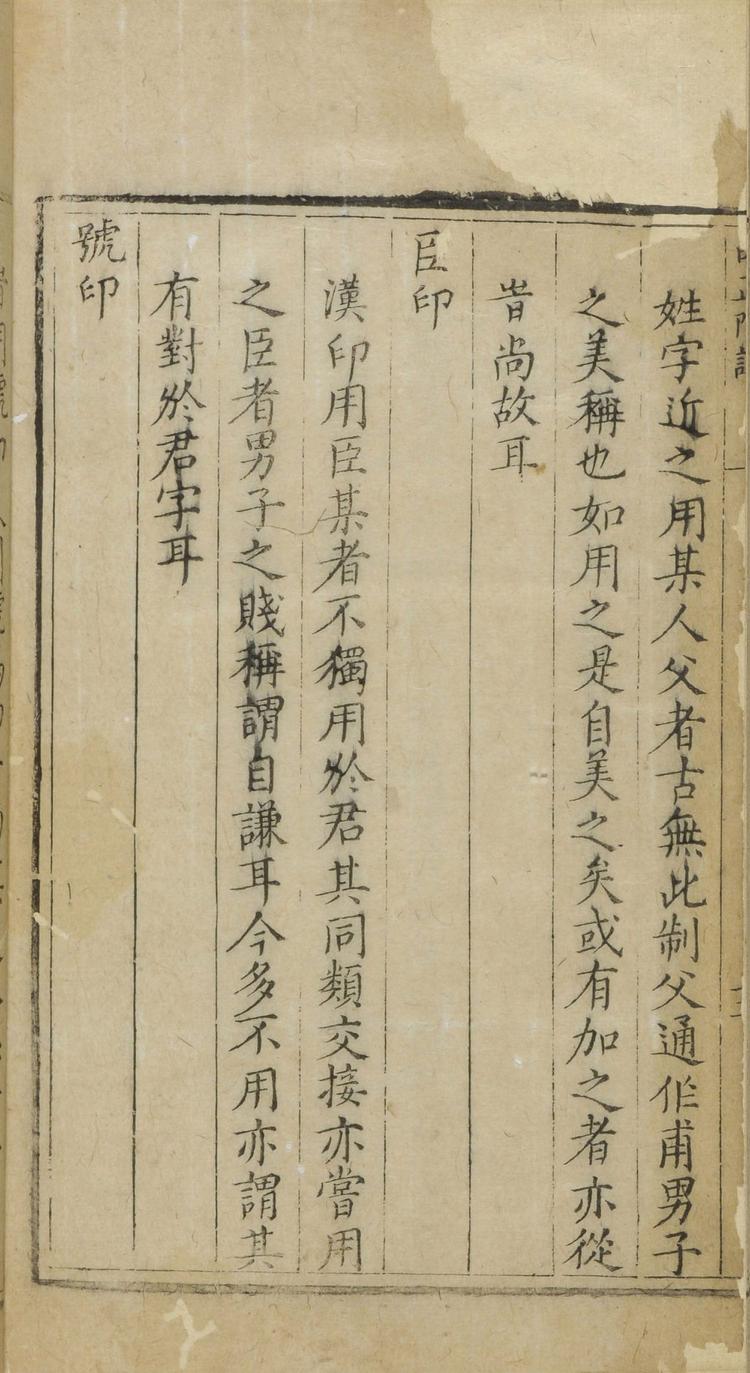 姓字近之用某人父者古無此制父通作甫男子
之美稱也如用之是自美之矣或有加之者亦從
旹尚故耳
臣印
漢印用臣某者不獨用於君其同類交接亦嘗用
之臣者男子之賤稱謂自謙耳今多不用亦謂其
有對於君字耳
號印